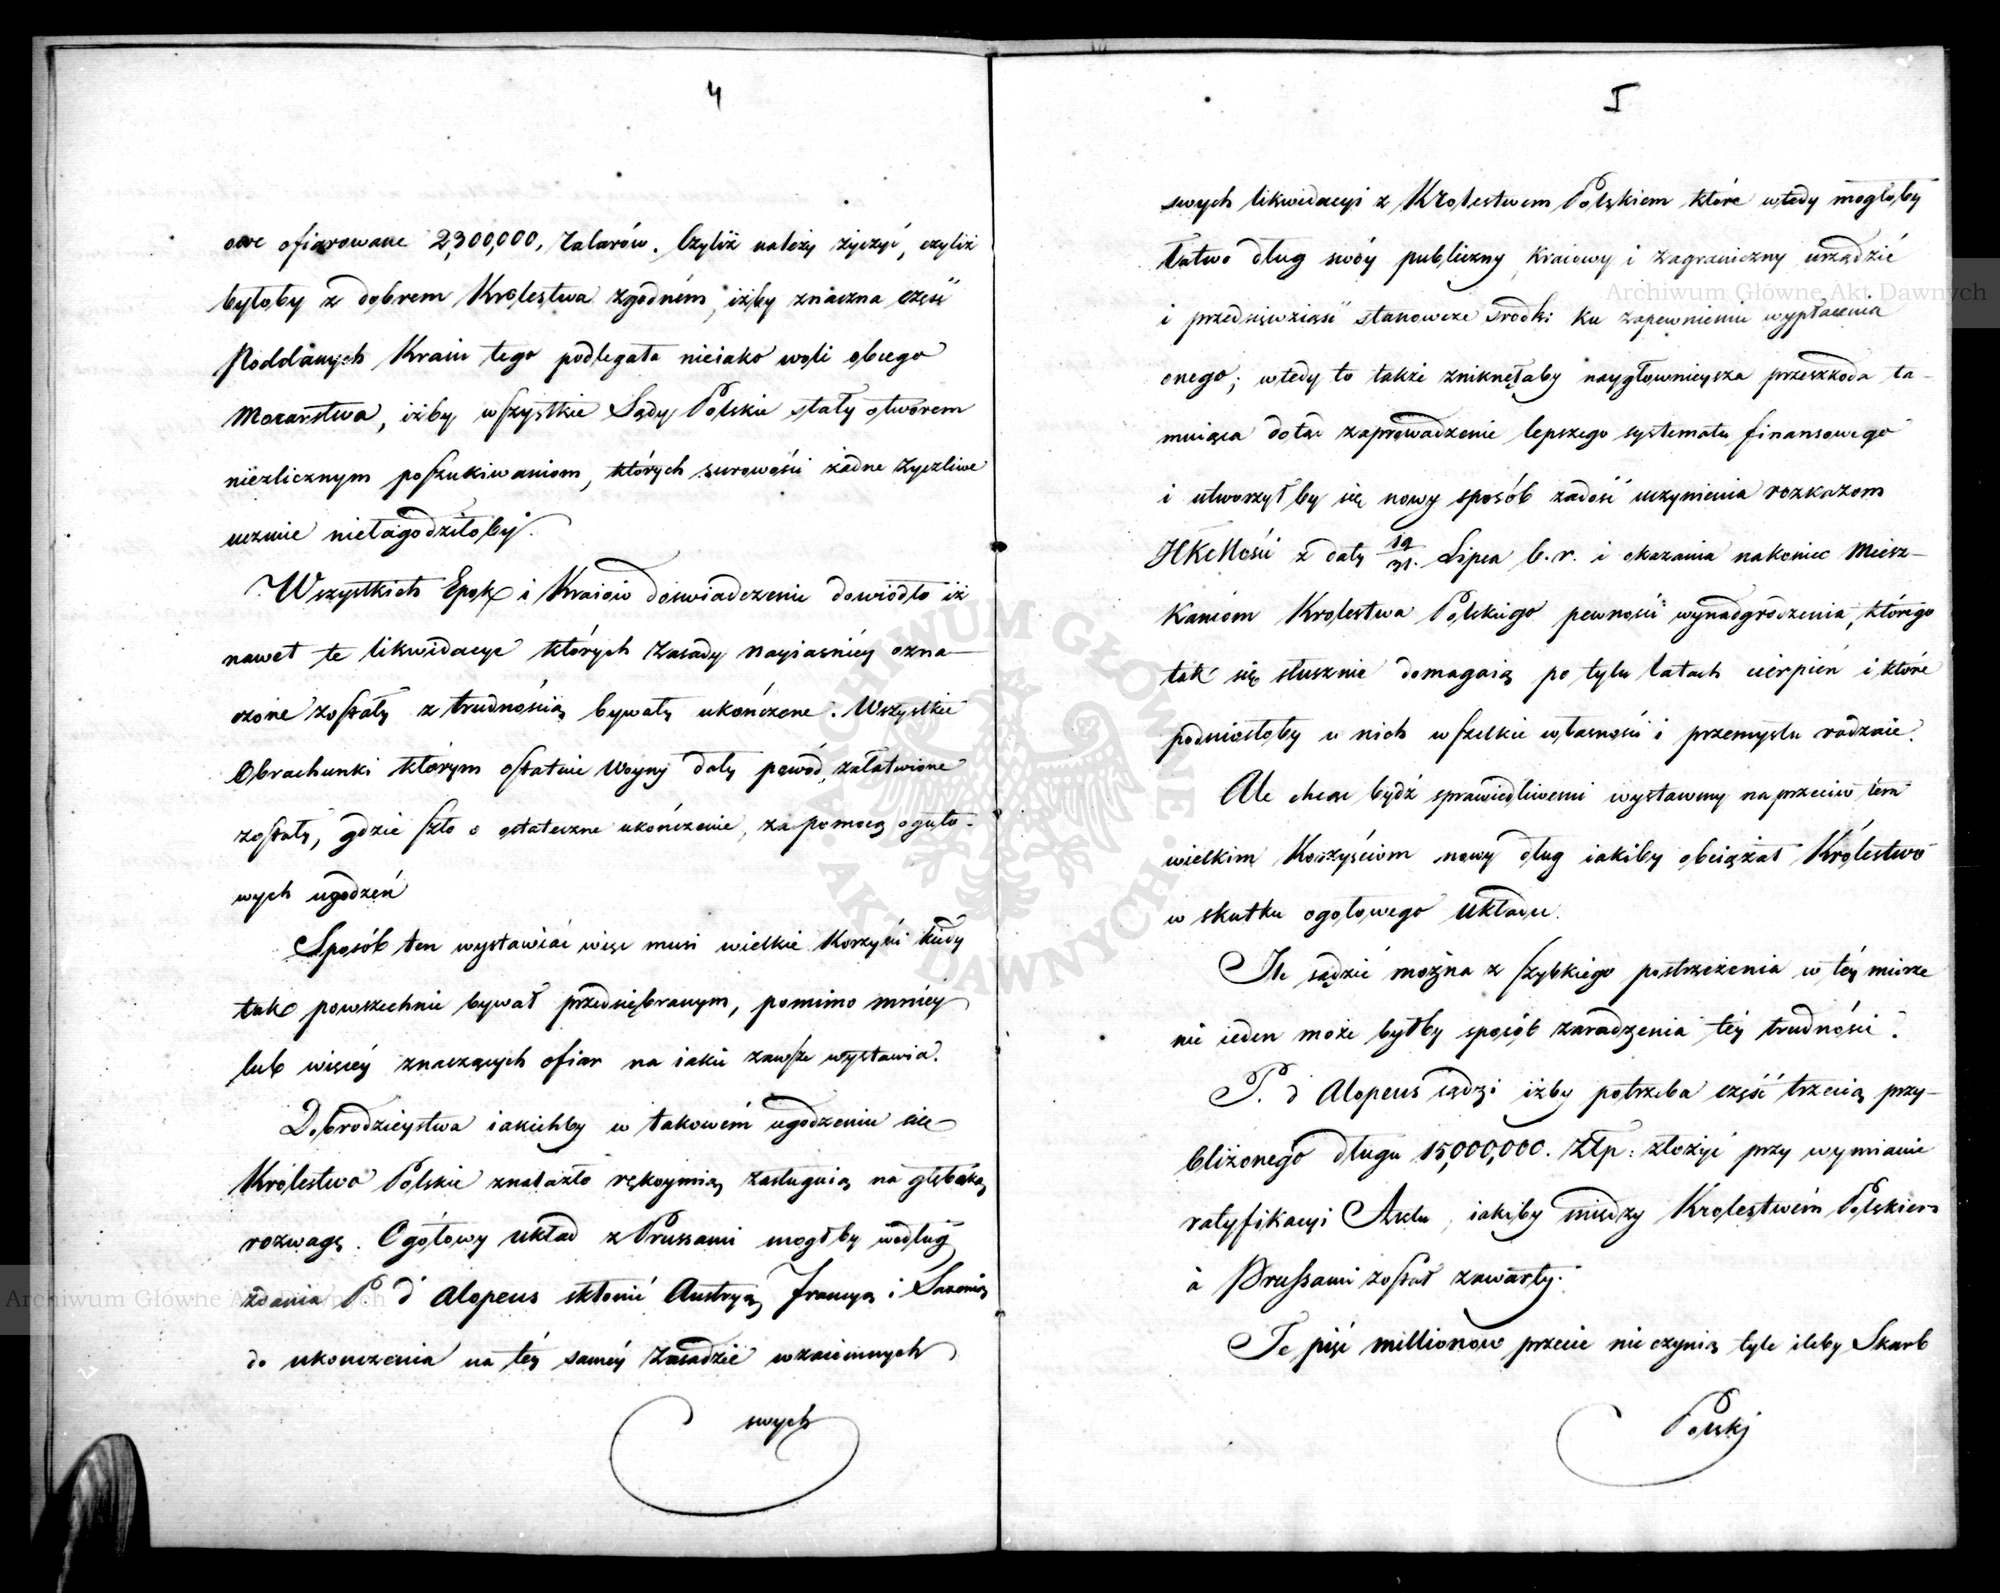 4
owe ofiarowane 2,300,000, talarów. Czyliż należy życzyć, czyliż
byłoby z dobrem Królestwa zgodném, iżby znaczna część
Poddanych Kraiu tego podlegała nieiako woli obcego
Mocarstwa, iżby wszystkie Sądy Polskie stały otworem
niezlicznym poszukiwaniom, których surowości żadne życzliwe
uczucie niełagodziłoby.
Wszystkich Epok i Kraiów doświadczenie dowiodło iż
nawet te likwidacye których zasady nayiaśniéy ozna-
czone zostały z trudnością bywały ukończone. Wszystkie
Obrachunki którym ostatnie Woyny dały powód, załatwione
zostały, gdzie szło o ostateczne ukończenie, za pomocą ogóło-
wych ugodzeń
Sposób ten wystawiać więc musi wielkie Korzyści kiedy
tak powszechnie bywał przedsiębranym, pomimo mniéy
lub więcéy znaczących ofiar na iakie zawsze wystawia.
Dobrodzieystwa iakichby w takowém ugodzeniu się
Królestwo Polskie znalazło rękoymią zasługuią na głęboką
rozwagę. Ogółowy układ z Prussami mógłby według
zdania P. d'Alopeus skłonić Austryą, Francyą i Saxonią
do ukończenia na téy saméy zasadzie wzaiemnych
swych
5
swych likwidacyi z Królestwem Polskiem które wtedy mogłoby
łatwo dług swóy publiczny kraiowy i zagraniczny urządzić
i przedsięwziąść stanowcze środki ku zapewnieniu wypłacenia
onego; wtedy to także zniknęłaby naygłównieysza przeszkoda ta-
muiąca dotąd zaprowadzenie lepszego systematu finansowego
i utworzyłby się nowy sposób zadość uczynienia rozkazom
JKCMości z daty 19/31. Lipca b. r. i okazania nakoniec miesz-
kańcom Królestwa Polskiego pewności wynadgrodzenia, którego
tak się słusznie domagaią po tylu latach cierpień i które
podniosłoby u nich wszelkie własności i przemysłu rodzaie.
Ale chcąc bydź sprawiedliwemi wystawmy naprzeciw tém
wielkim Korzyściom nowy dług iakiby obciążał Królestwo
w skutku ogółowego układu.
Ile sądzić można z szybkiego postrzeżenia w téy mierze
nie ieden może byłby sposób zaradzenia téy trudności.
P. d'Alopeus sądzi iżby potrzeba część trzecią przy-
bliżonego długu 15,000,000. Złp: złożyć przy wymianie
ratyfikacyi Aktu, iakiby między Królestwém Polskiem
a Prussami został zawarty.
Te pięć millionów przecie nie czynią tyle ileby Skarb
Polski
Archiwum Główne Akt Dawnych
Archiwum Główne Akt Dawnych
ARCHIWUM GŁÓWNE · AKT DAWNYCH ·